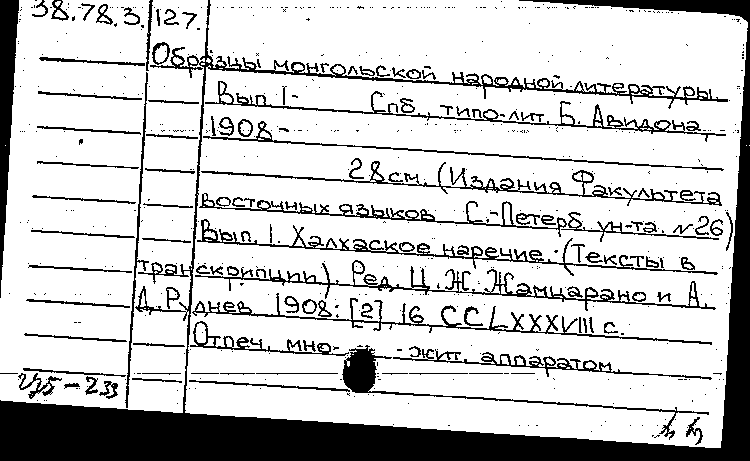 38.78.3.127.
Образцы монгольской народной литературы.
Вып. 1- Спб., типо-лит. Б. Авидона,
1908-
28см. (Издания Факультета
восточных языков С.-Петерб. ун-та. №26)
Вып. 1. Халхаское наречие.: (Тексты в
транскрипции). Ред. Ц. Ж. Жамцарано и А.
Д. Руднев 1908: [2], 16, CCLXXXVIII с.
Отпеч. мно- -жит. аппаратом.